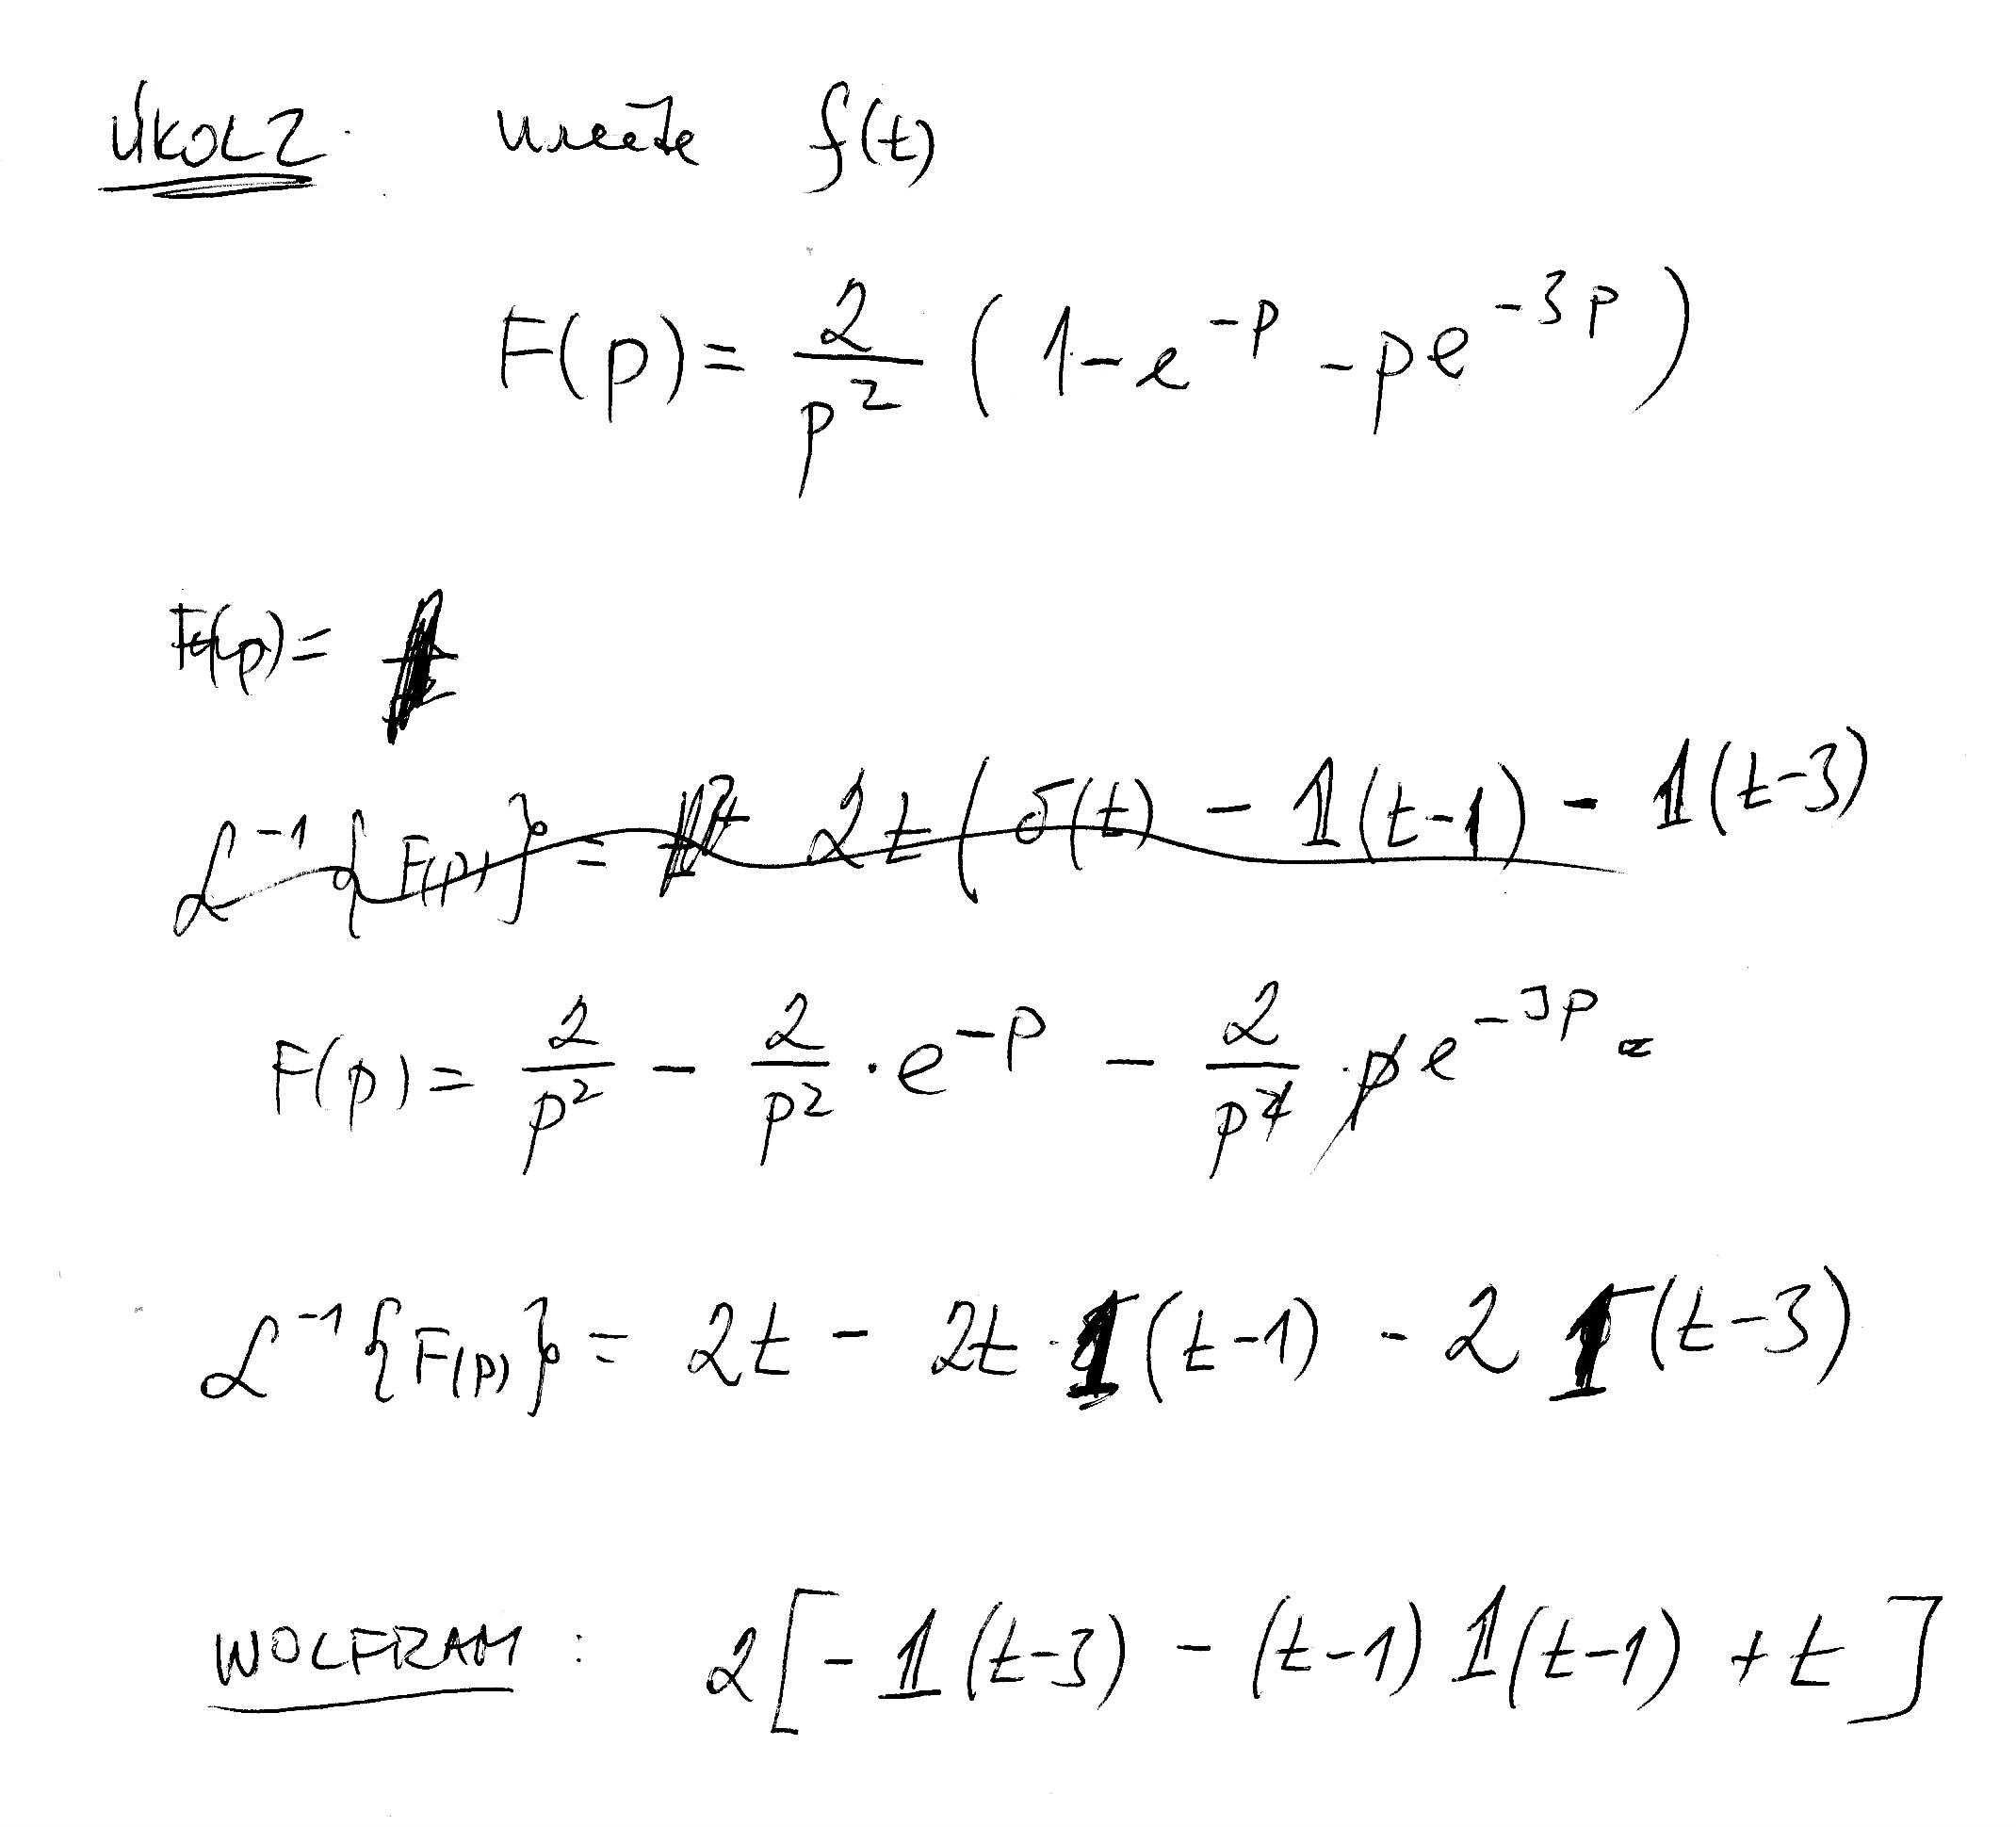 ÚKOL 2. Určete f(t)
F(p) = 2/p² (1 - e^-p - pe^-3p)
F(p) =
ℒ^-1{F(p)} = 2t (δ(t) - 1(t-1) - 1(t-3)
F(p) = 2/p² - 2/p² · e^-p - 2/p² · pe^-3p =
ℒ^-1{F(p)} = 2t - 2t · 1(t-1) - 2 1(t-3)
WOLFRAM : 2[- 1(t-3) - (t-1) 1(t-1) + t]